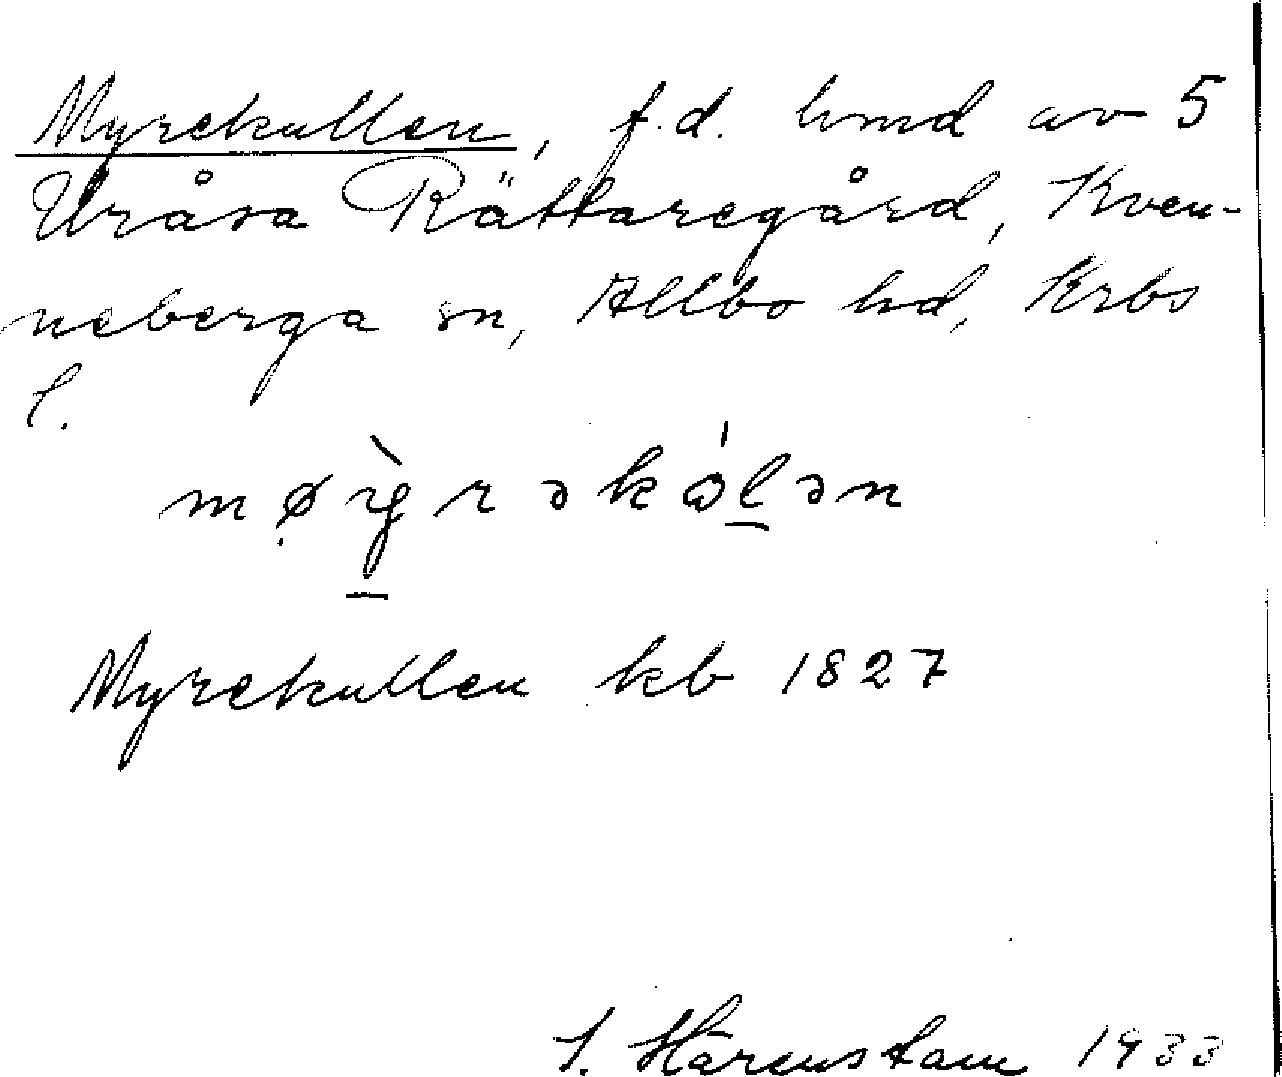 Myrekullen, f.d. hmd av 5
Uråsa Rättaregård, Kven-
neberga sn, Allbo hd, Krbs
l.
Myrekullen kb 1827
Härenstam 1933